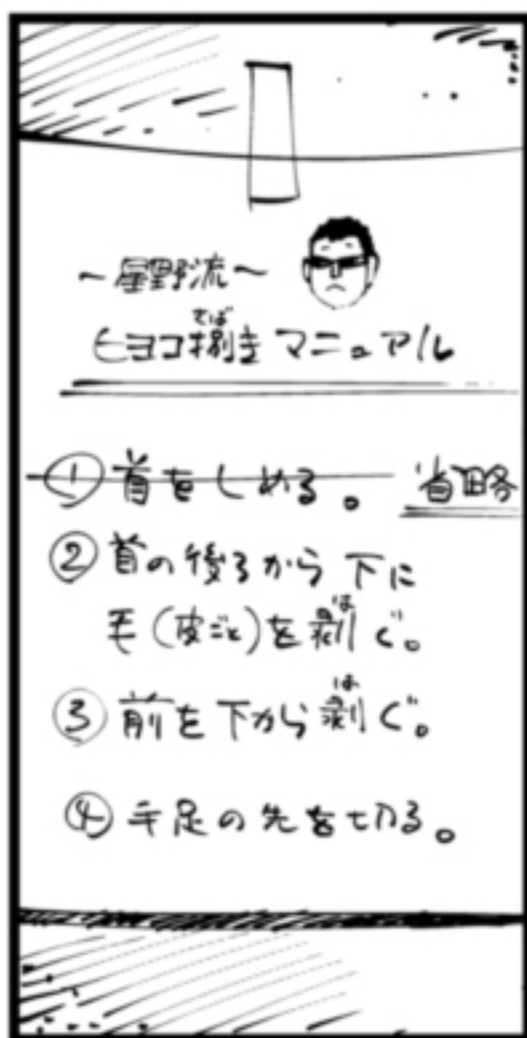 ～星野流～
ヒヨコ捌きマニュアル
さば
①首をしめる。 省略
②首の後ろから下に
毛(皮ごと)を剥ぐ。
は
③前を下から剥ぐ。
は
④手足の先を切る。